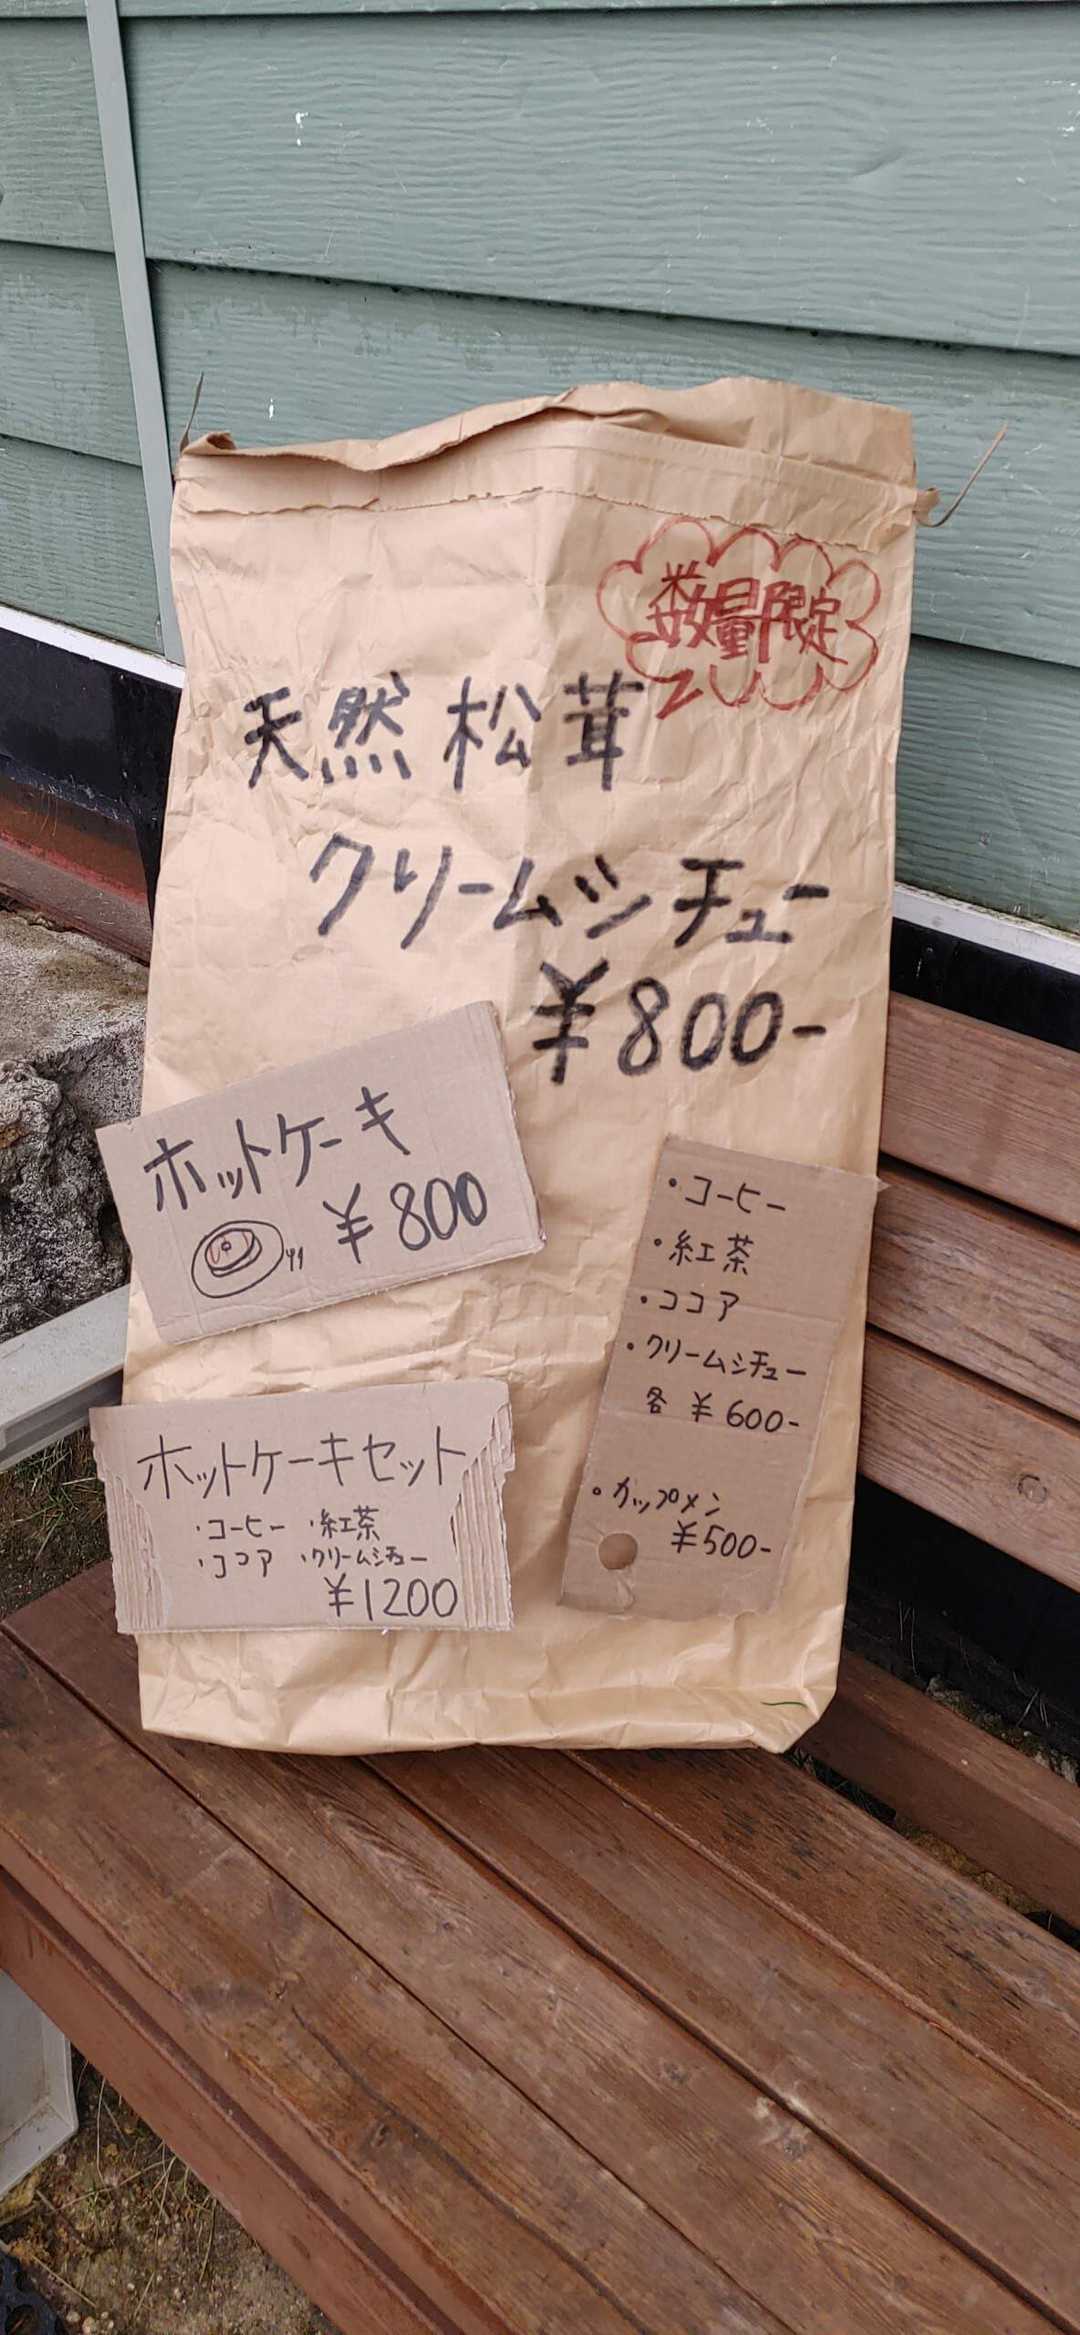 数量限定
天然松茸
クリームシチュー
¥800-
ホットケーキ
¥800
・コーヒー
・紅茶
・ココア
・クリームシチュー
各 ¥600-
・カップメン
¥500-
ホットケーキセット
・コーヒー ・紅茶
・ココア ・クリームシチュー
¥1200